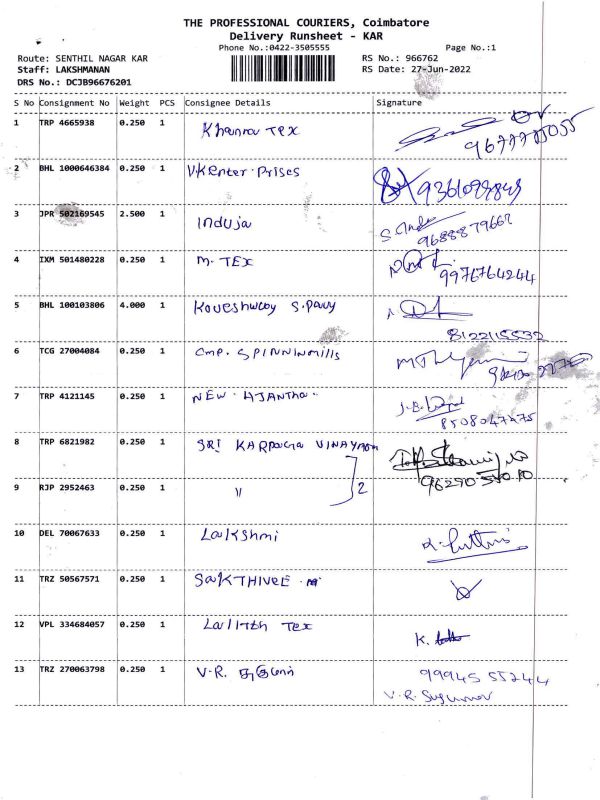 THE PROFESSIONAL COURIERS, Coimbatore
Delivery Runsheet - KAR
Phone No.:0422-3505555 Page No.:1
Route: SENTHIL NAGAR KAR RS No.: 966762
Staff: LAKSHMANAN RS Date: 27-Jun-2022
DRS No.: DCJB96676201
S No Consignment No Weight PCS Consignee Details Signature
1 TRP 4665938 0.250 1 Khanna Tex
2 BHL 1000646384 0.250 1 VKEnter.Prises
3 JPR 502169545 2.500 1 Induja
9688879662
4 IXM 501480228 0.250 1 M. TEX
9976764244
5 BHL 100103806 4.000 1
8122115532
6 TCG 27004084 0.250 1 CMP. SPINNINMills
7 TRP 4121145 0.250 1 NEW. AJANTHA.
8508047475
8 TRP 6821982 0.250 1 SRI KARPAGA VINAYAGA
9 RJP 2952463 0.250 1 " 2
10 DEL 70067633 0.250 1 Lakshmi
11 TRZ 50567571 0.250 1 SAKTHIVEL
12 VPL 334684057 0.250 1 Lalith Tex K.
13 TRZ 270063798 0.250 1 V.R. சுகுமார் 99945 55244
V.R. Sugumar